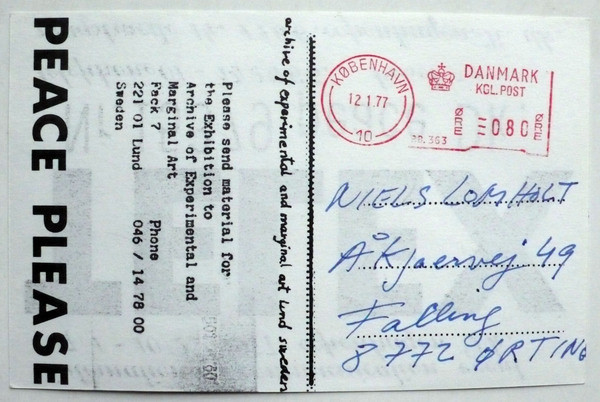 PEACE PLEASE
Please send material for
the Exhibition to
Archive of Experimental and
Marginal Art
Fack 7
221 01 Lund
Phone 046 / 14 78 00
Sweden
archive of experimental and marginal art lund sweden
KØBENHAVN
12.1.77
10
DANMARK
KGL.POST
ØRE
080
ØRE
NIELS LOMHOLT
Åkjaervej 49
Falling
8772 ØRTING